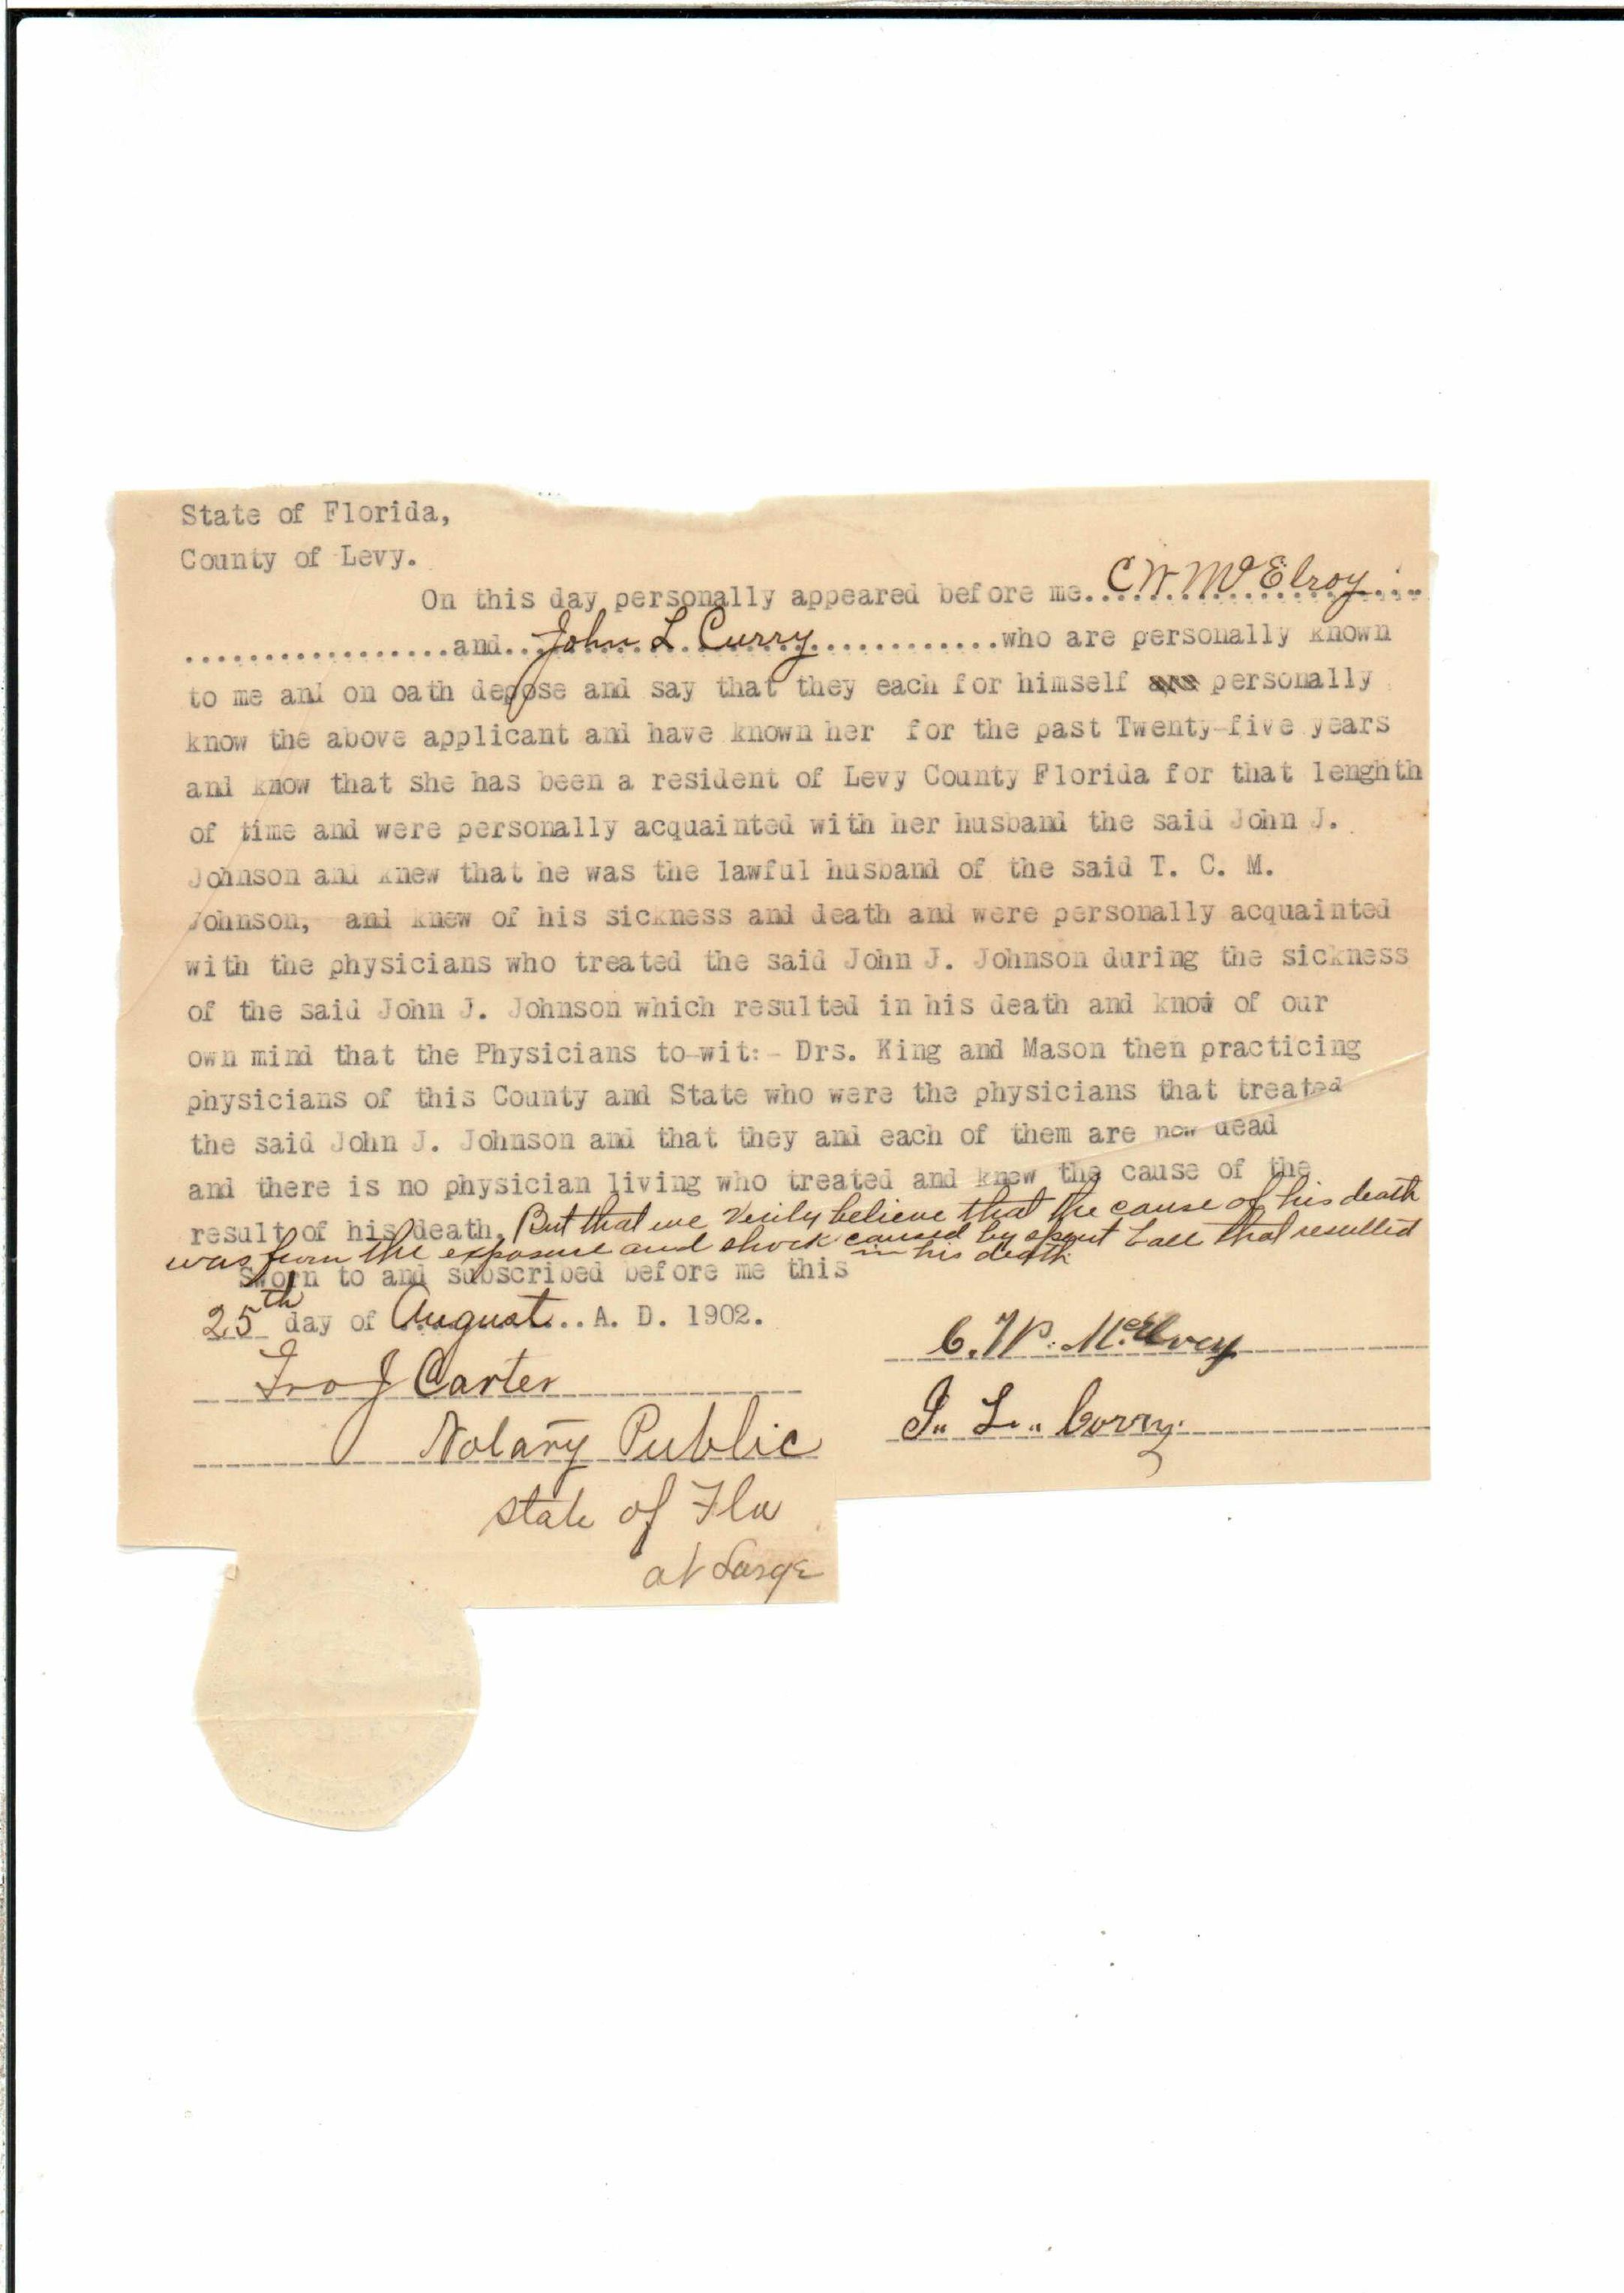 State of Florida,
County of Levy.
On this day personally appeared before me. C W McElroy
and John L Curry who are personally known
to me and on oath depose and say that they each for himself are personally
know the above applicant and have known her for the past Twenty-five years
and know that she has been a resident of Levy County Florida for that lenghth
of time and were personally acquainted with her husband the said John J.
Johnson and knew that he was the lawful husband of the said T. C. M.
Johnson, and knew of his sickness and death and were personally acquainted
with the physicians who treated the said John J. Johnson during the sickness
of the said John J. Johnson which resulted in his death and know of our
own mind that the Physicians to-wit:- Drs. King and Mason then practicing
physicians of this County and State who were the physicians that treated
the said John J. Johnson and that they and each of them are now dead
and there is no physician living who treated and knew the cause of the
result of his death. But that we verily believe that the cause of his death
was from the exposure and shock caused by spent ball that resulted
in his death
Sworn to and subscribed before me this
25th day of August.. A. D. 1902.
C. W. McElroy
Jno J Carter
J. L. Curry
Notary Public
State of Fla
at Large